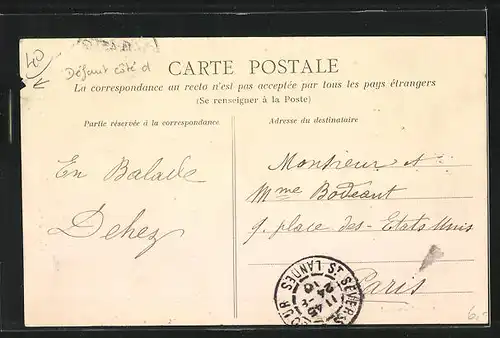 40
Défaut côté d
CARTE POSTALE
La correspondance au recto n'est pas acceptée par tous les pays étrangers
(Se renseigner à la Poste)
Partie réservée à la correspondance
Adresse du destinataire
En Balade
Dehez
Monsieur et
Mme Bodeant
9. place des Etats Unis
Paris
ST SEVER S ADOUR
LANDES
11 45
24 -6
10
6.-